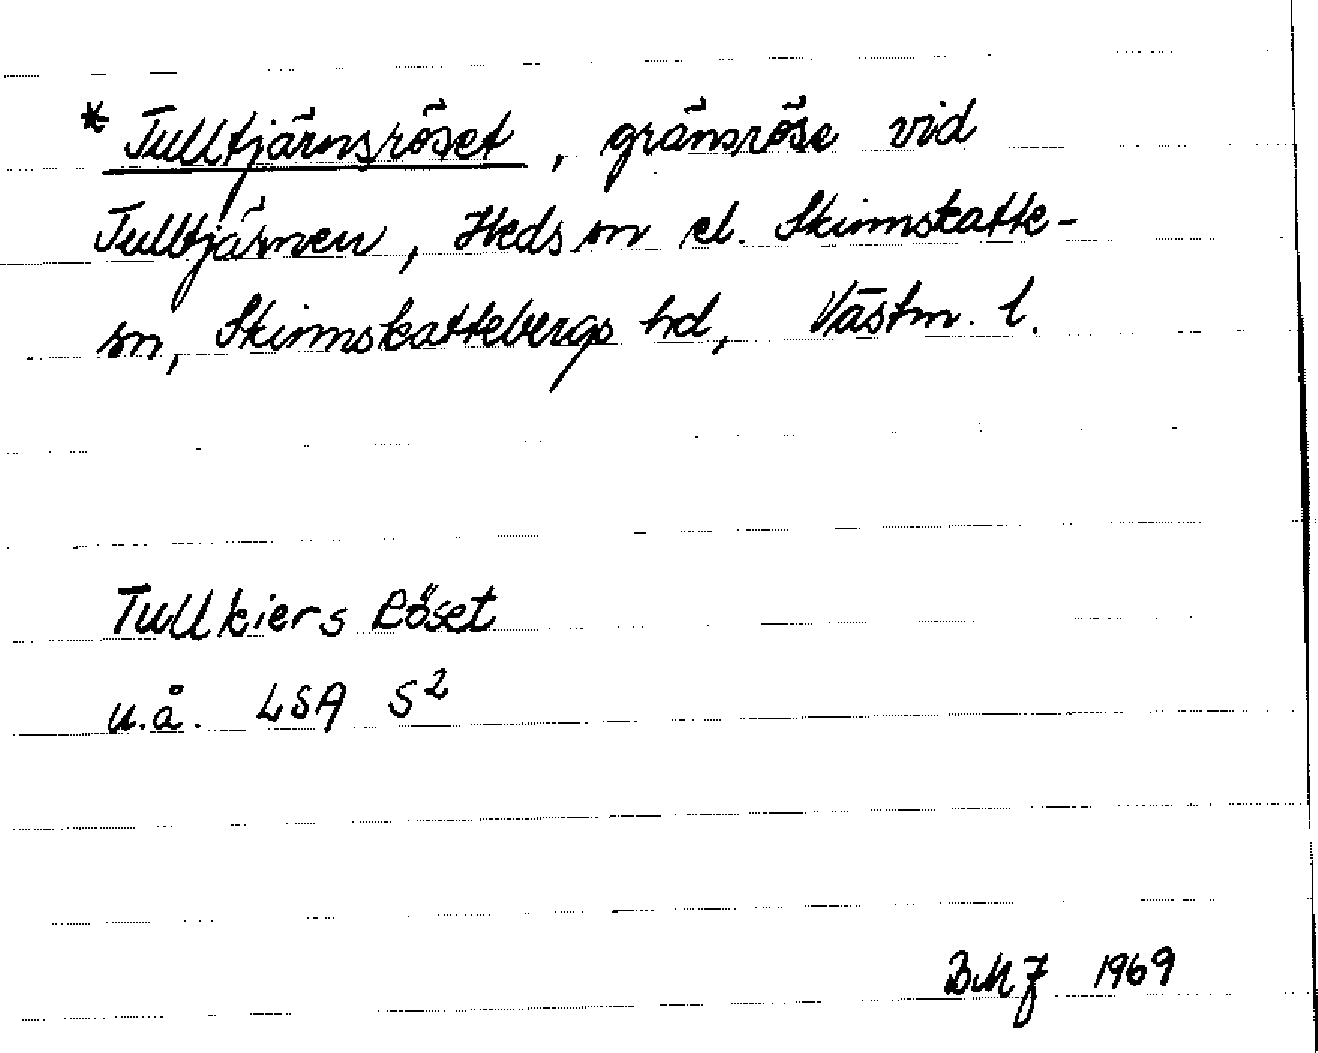 * Tulltjärnsröset, gränsröse vid
Tulltjärnen, Heds sn el. Skinnskatte-
sn, Skinnskattebergs hd, Västm. l.
Tullkiers Röset
u.å. LSA S²
BMJ 1969